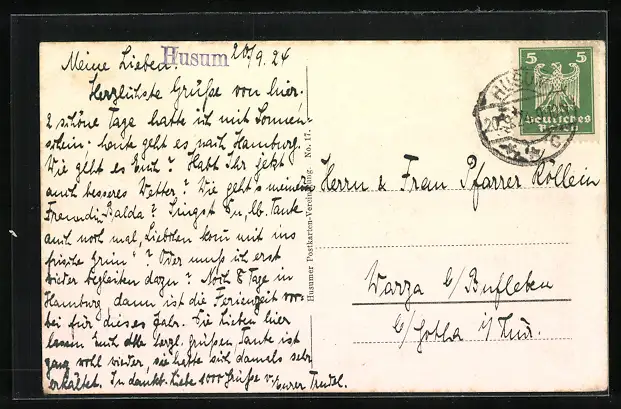 Husum 20/9.24
Meine Lieben!
Herzlichste Grüße von hier.
2 schöne Tage hatte ich mit Sonnen-
schein. heute geht es nach Hamburg.
Wie geht es Euch? Habt Ihr jetzt
auch besseres Wetter? Wie geht's meinem
Freund Balda? Singst Du, lb. Tante
auch noch mal, Liebchen kom mit ins
frische Grün"? Oder muß ich erst
wieder begleiten dazu? Noch 8 Tage in
Hamburg dann ist die Ferienzeit vor-
bei für dieses Jahr. Die Lieben hier
lassen Euch alle herzl. grüßen, Tante ist
ganz wohl wieder, sie hatte sich damals sehr
erkältet. In dankb. Liebe 1000 Grüße v. Eurer Trudel.
Husumer Postkarten-Vereinigung. No. 17.
5 5
Deutsches
Reich
HUSUM
Herrn & Frau Pfarrer Köllein
Warza b/ Bufleben
b/ Gotha i/ Thür.